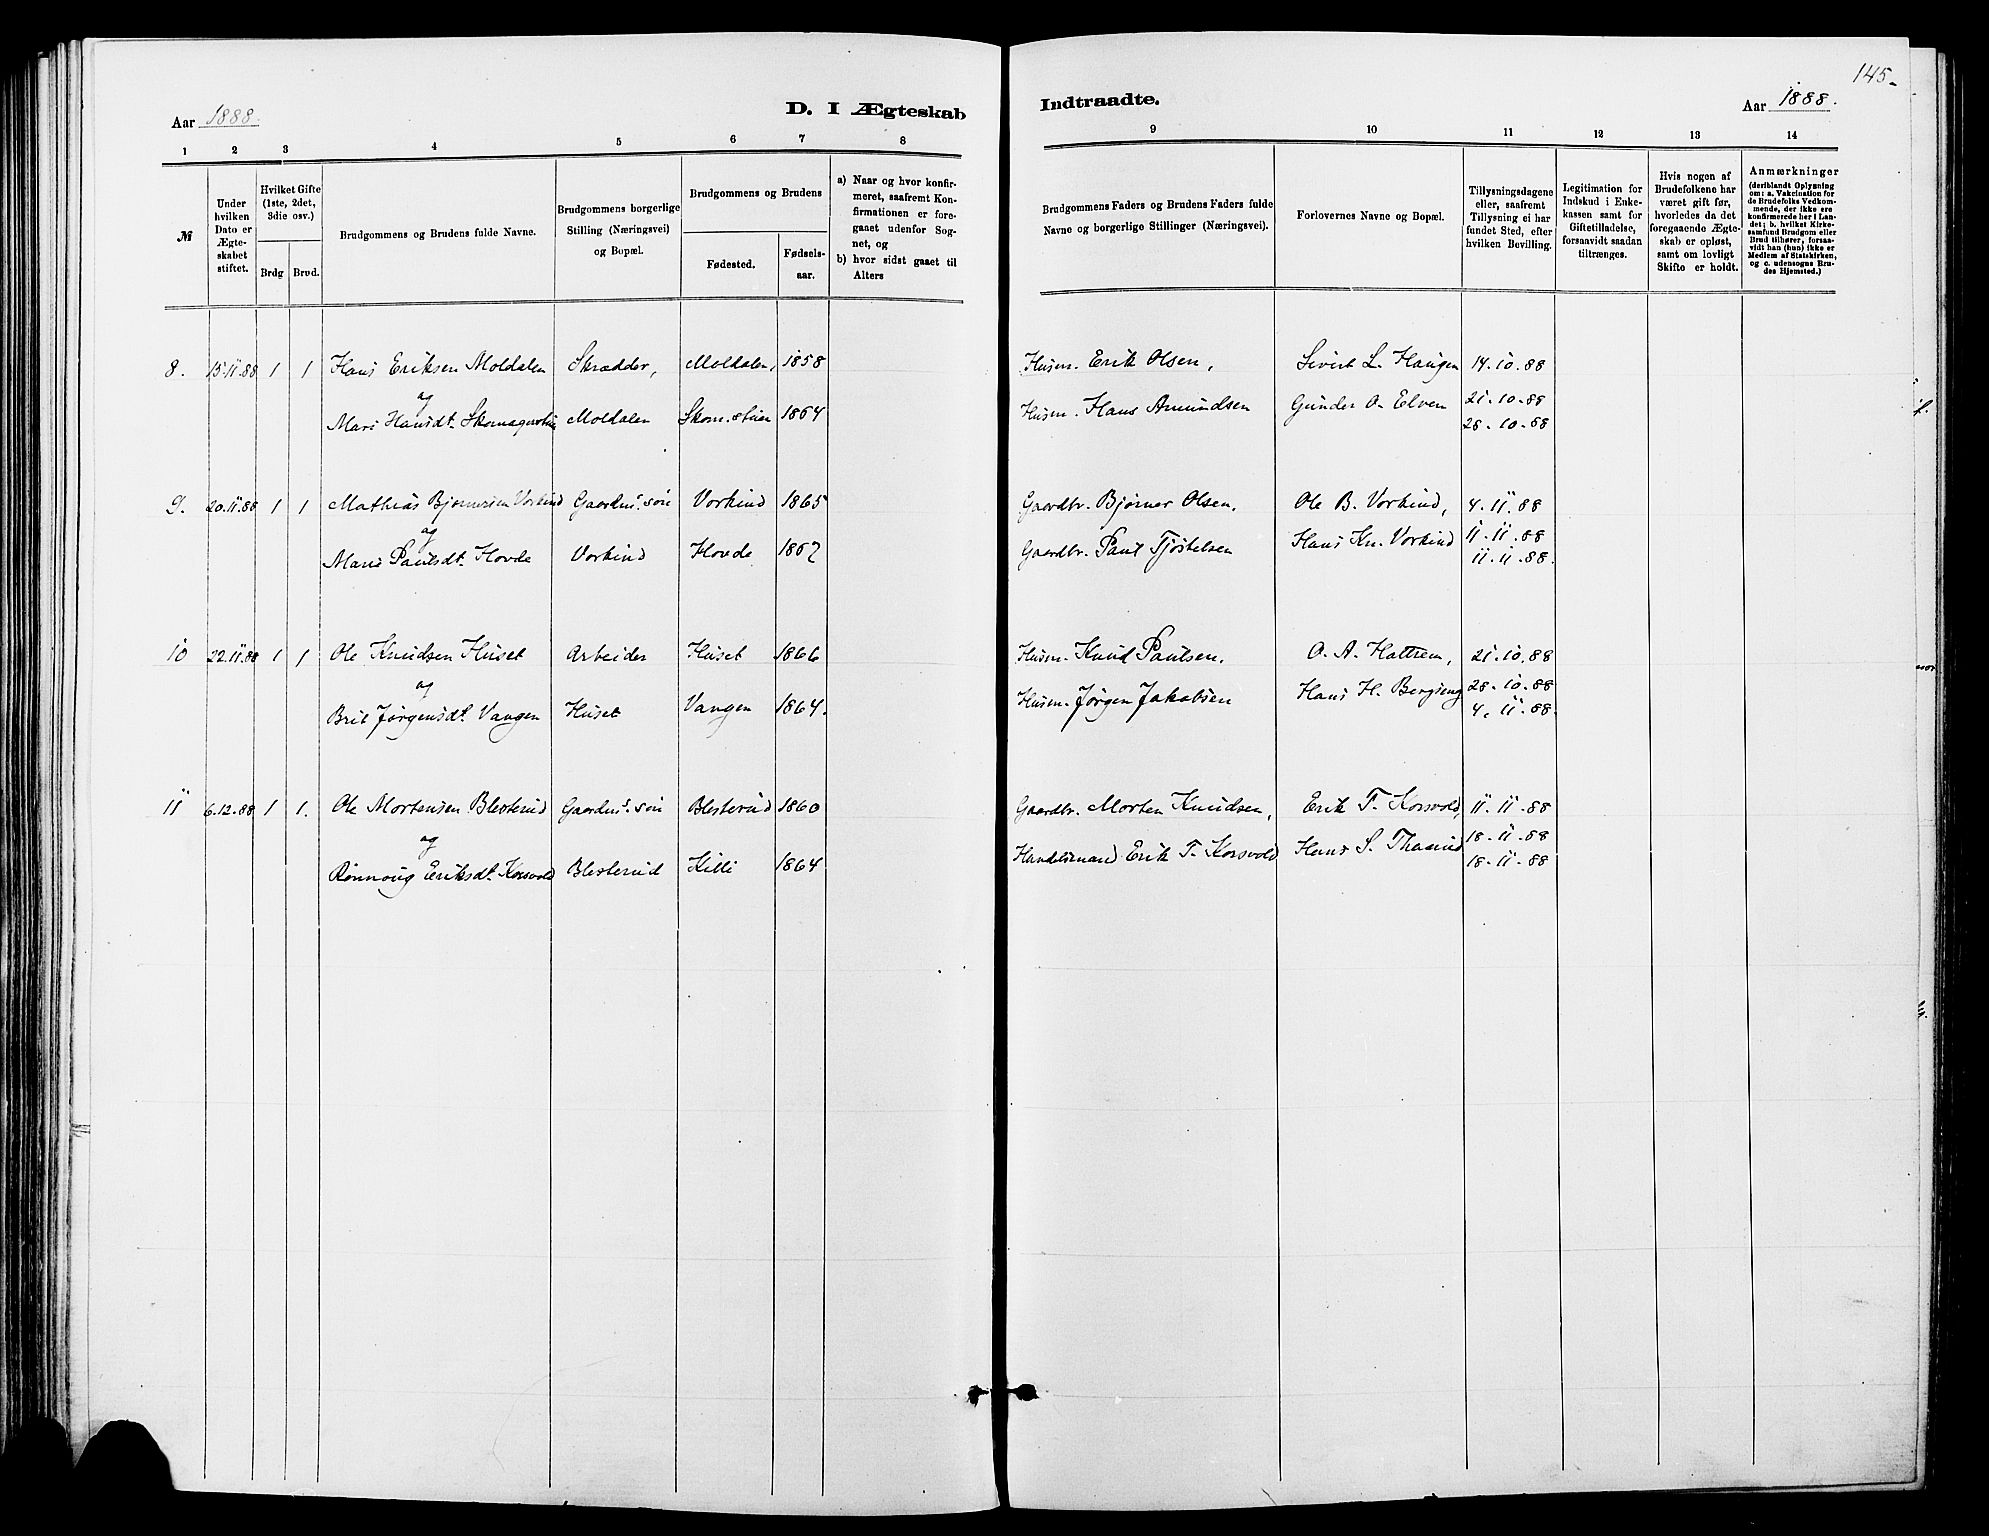 145-
Aar 1888.
D. I Ægteskab
Indtraadte.
Aar 1888.
1 2 3 4 5 6 7 8
9 10 11 12 13 14
№
Under hvilken Dato er Ægteskabet stiftet.
Hvilket Gifte (1ste, 2det, 3die osv.)
Brdg
Brud.
Brudgommens og Brudens fulde Navne.
Brudgommens borgerlige Stilling (Næringsvei) og Bopæl.
Brudgommens og Brudens
Fødested.
Fødselsaar.
a) Naar og hvor konfirmeret, saafremt Konfirmationen er foregaaet udenfor Sognet, og
b) hvor sidst gaaet til Alters
Brudgommens Faders og Brudens Faders fulde Navne og borgerlige Stillinger (Næringsvei).
Forlovernes Navne og Bopæl.
Tillysningsdagene eller, saafremt Tillysning ei har fundet Sted, efter hvilken Bevilling.
Legitimation for Indskud i Enkekassen samt for Giftetilladelse, forsaavidt saadan tiltrænges.
Hvis nogen af Brudefolkene har været gift før, hvorledes da det foregaaende Ægteskab er opløst, samt om lovligt Skifte er holdt.
Anmærkninger
(deriblandt Oplysning om: a. Vakcination for de Brudefolks Vedkommende, der ikke ere konfirmerede her i Landet; b. hvilket Kirkesamfund Brudgom eller Brud tilhører, forsaavidt han (hun) ikke er Medlem af Statskirken, og c. udensogns Brudes Hjemsted.)
8. 15.11.88 1 1 Hans Eriksen Moldalen Skrædder, Moldalen, 1858 Husm. Erik Olsen, Sivert L. Haugen 14.10.88
og
Mari Hansdt. Moldalen Skom.stuen 1864 Husm. Hans Amundsen Gunder O. Elven 21.10.88
28.10.88
9. 20.11.88 1 1 Mathias Bjørnersen Vorkind Gaardms. søn Vorkind 1865 Gaardbr. Bjørner Olsen. Ole B. Vorkind, 4.11.88
og
Mari Paulsdt. Hovde Vorkind Hovde 1867 Gaardbr. Paul Tjøstelsen Hans Kn. Vorkind 11.11.88
11.11.88.
10 22.11.88 1 1 Ole Knudsen Huset Arbeider Huset 1866 Husm. Knud Paulsen. O. A. Hattrem, 21.10.88
og
Brit Jørgensdt. Vangen Huset Vangen 1864. Husm. Jørgen Jakobsen Hans H. Bergseng 28.10.88
4.11.88.
11 6.12.88 1 1. Ole Mortensen Blesterud Gaardms. søn Blesterud 1860 Gaardbr. Morten Knudsen, Erik T. Korsvold, 11.11.88
og
Rønnoug Eriksdt. Korsvold Blesterud Killi 1864 Handelsmand Erik T. Korsvold Hans S. Thaarud 18.11.88
18.11.88